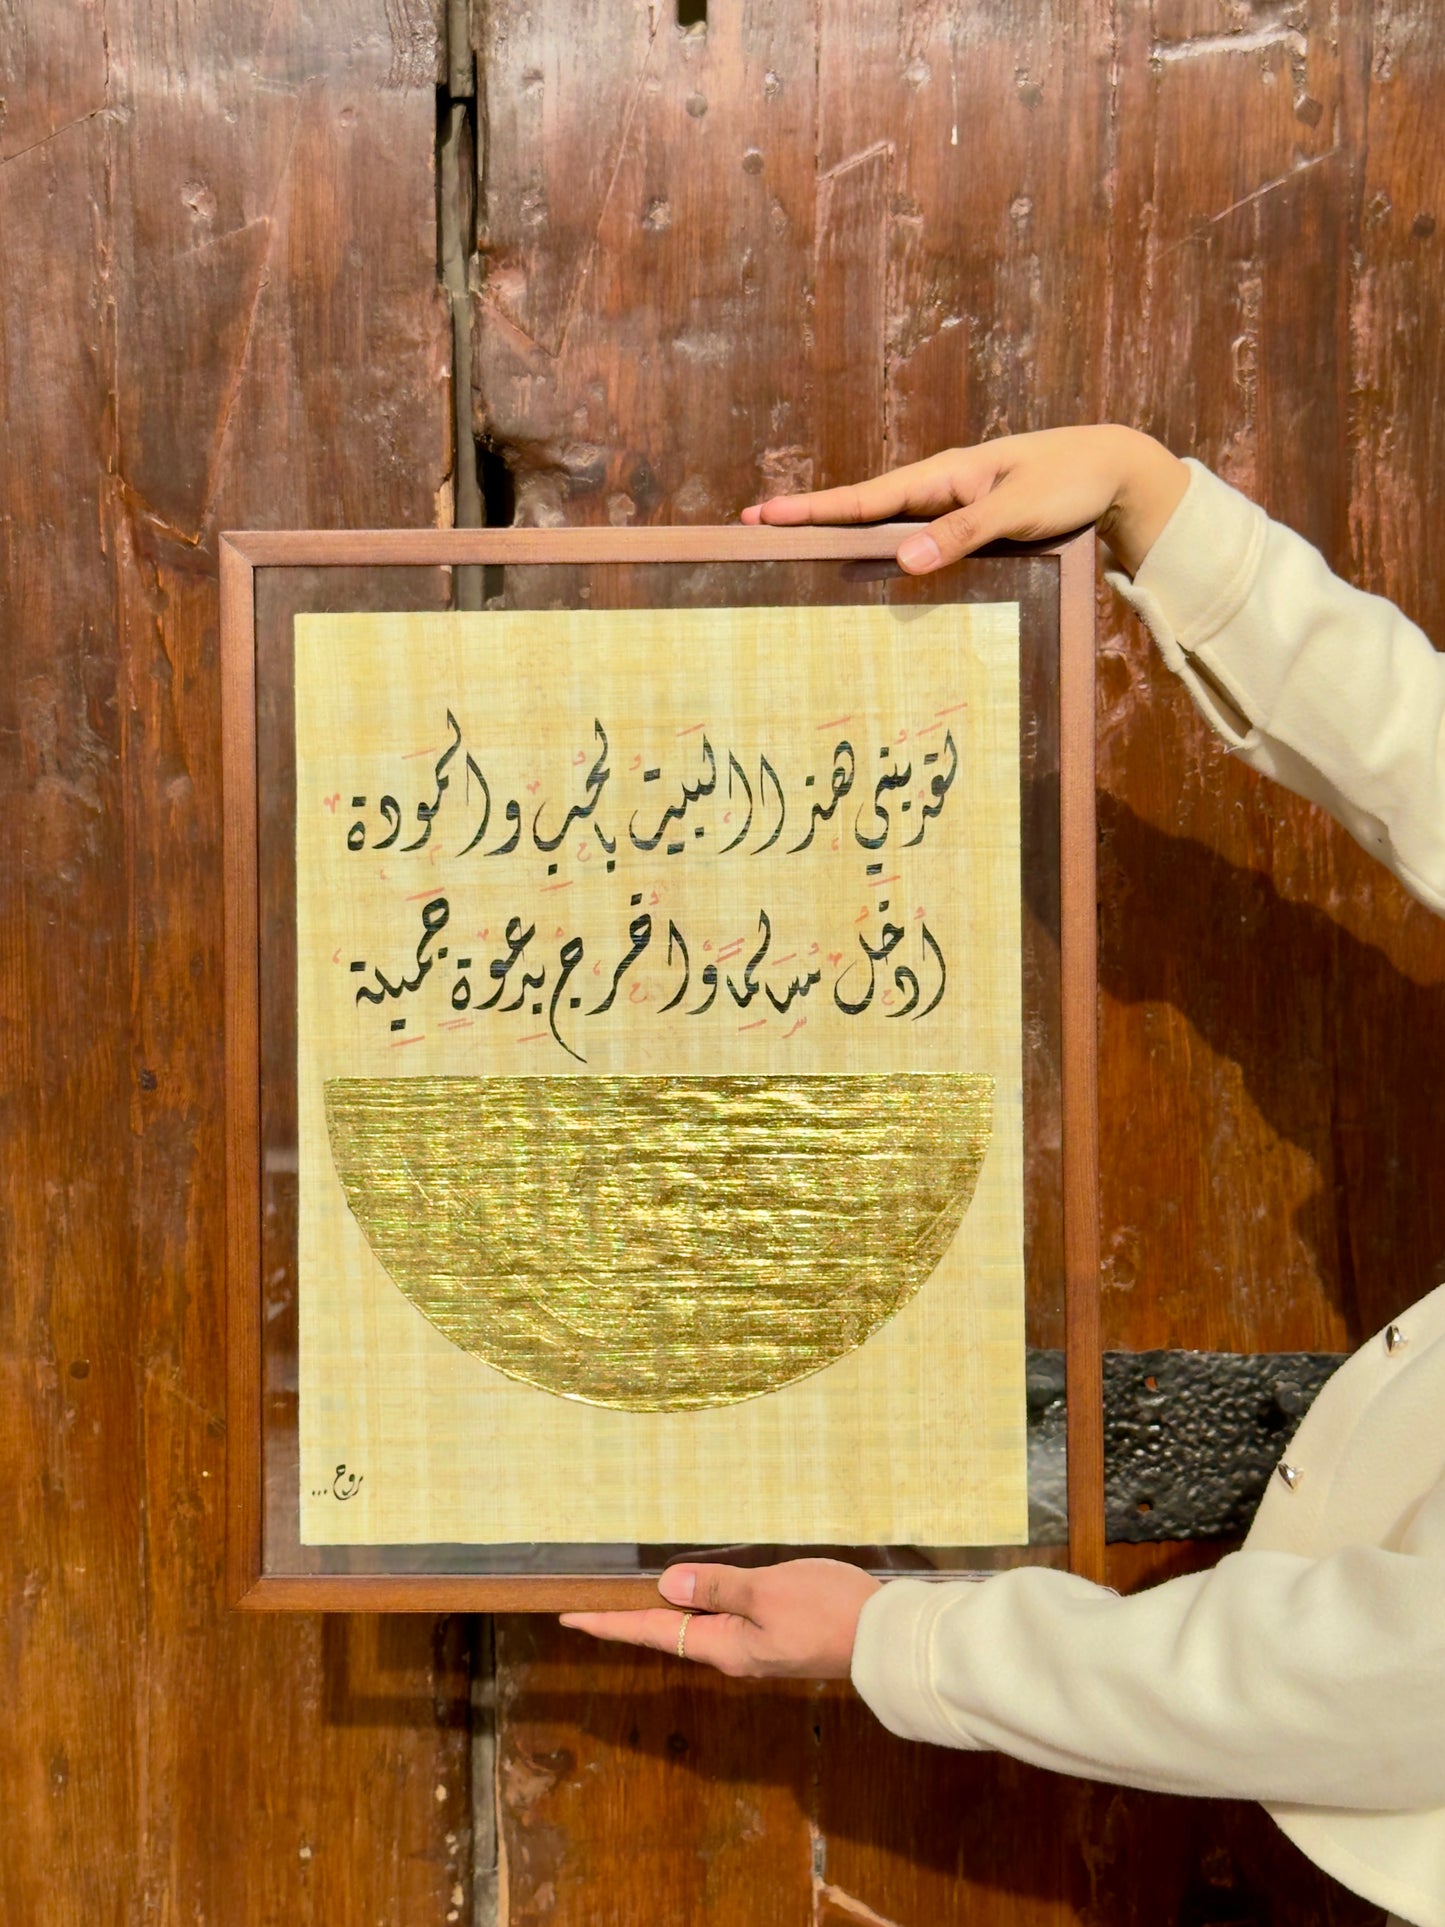 لَقَدْ بُنِي هَذا البَيتُ بالحُبِّ والمَودة
أُدخُلْ مُسَالِمًا وْاخرُجْ بِدَعوَةٍ جَمِيلِة
روح...